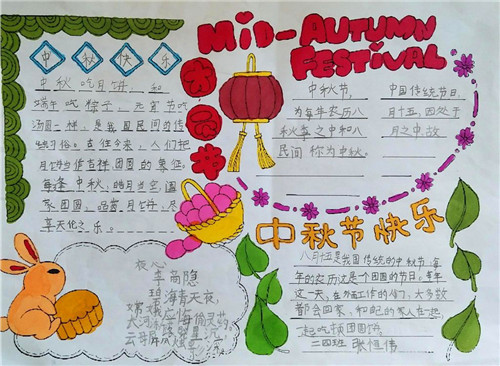 MiD-AUTUMN
FESTiVAL
中秋快乐
中秋吃月饼,和
端午吃粽子,元宵节吃
汤圆一样,是我国民间的传
统习俗。古往今来,人们把
月饼当作吉祥团圆的象征,
每逢中秋,皓月当空,阖
家团圆,品着月饼,尽
享天伦之乐。
中秋节,
中国传统节日,
为每年农历八
月十五,因处于
秋季之中和八
月之中,故
民间称为中秋。
中秋节快乐
李商隐
碧海青天夜,
嫦娥应悔偷灵药,
八月十五是我国传统的中秋节,每
年的农历这是个团圆的节日,每年
这一天,在外面工作的人们,大多数
都会回家,和自己的家人在一起
一起吃顿团圆饭
二四班 张恒伟